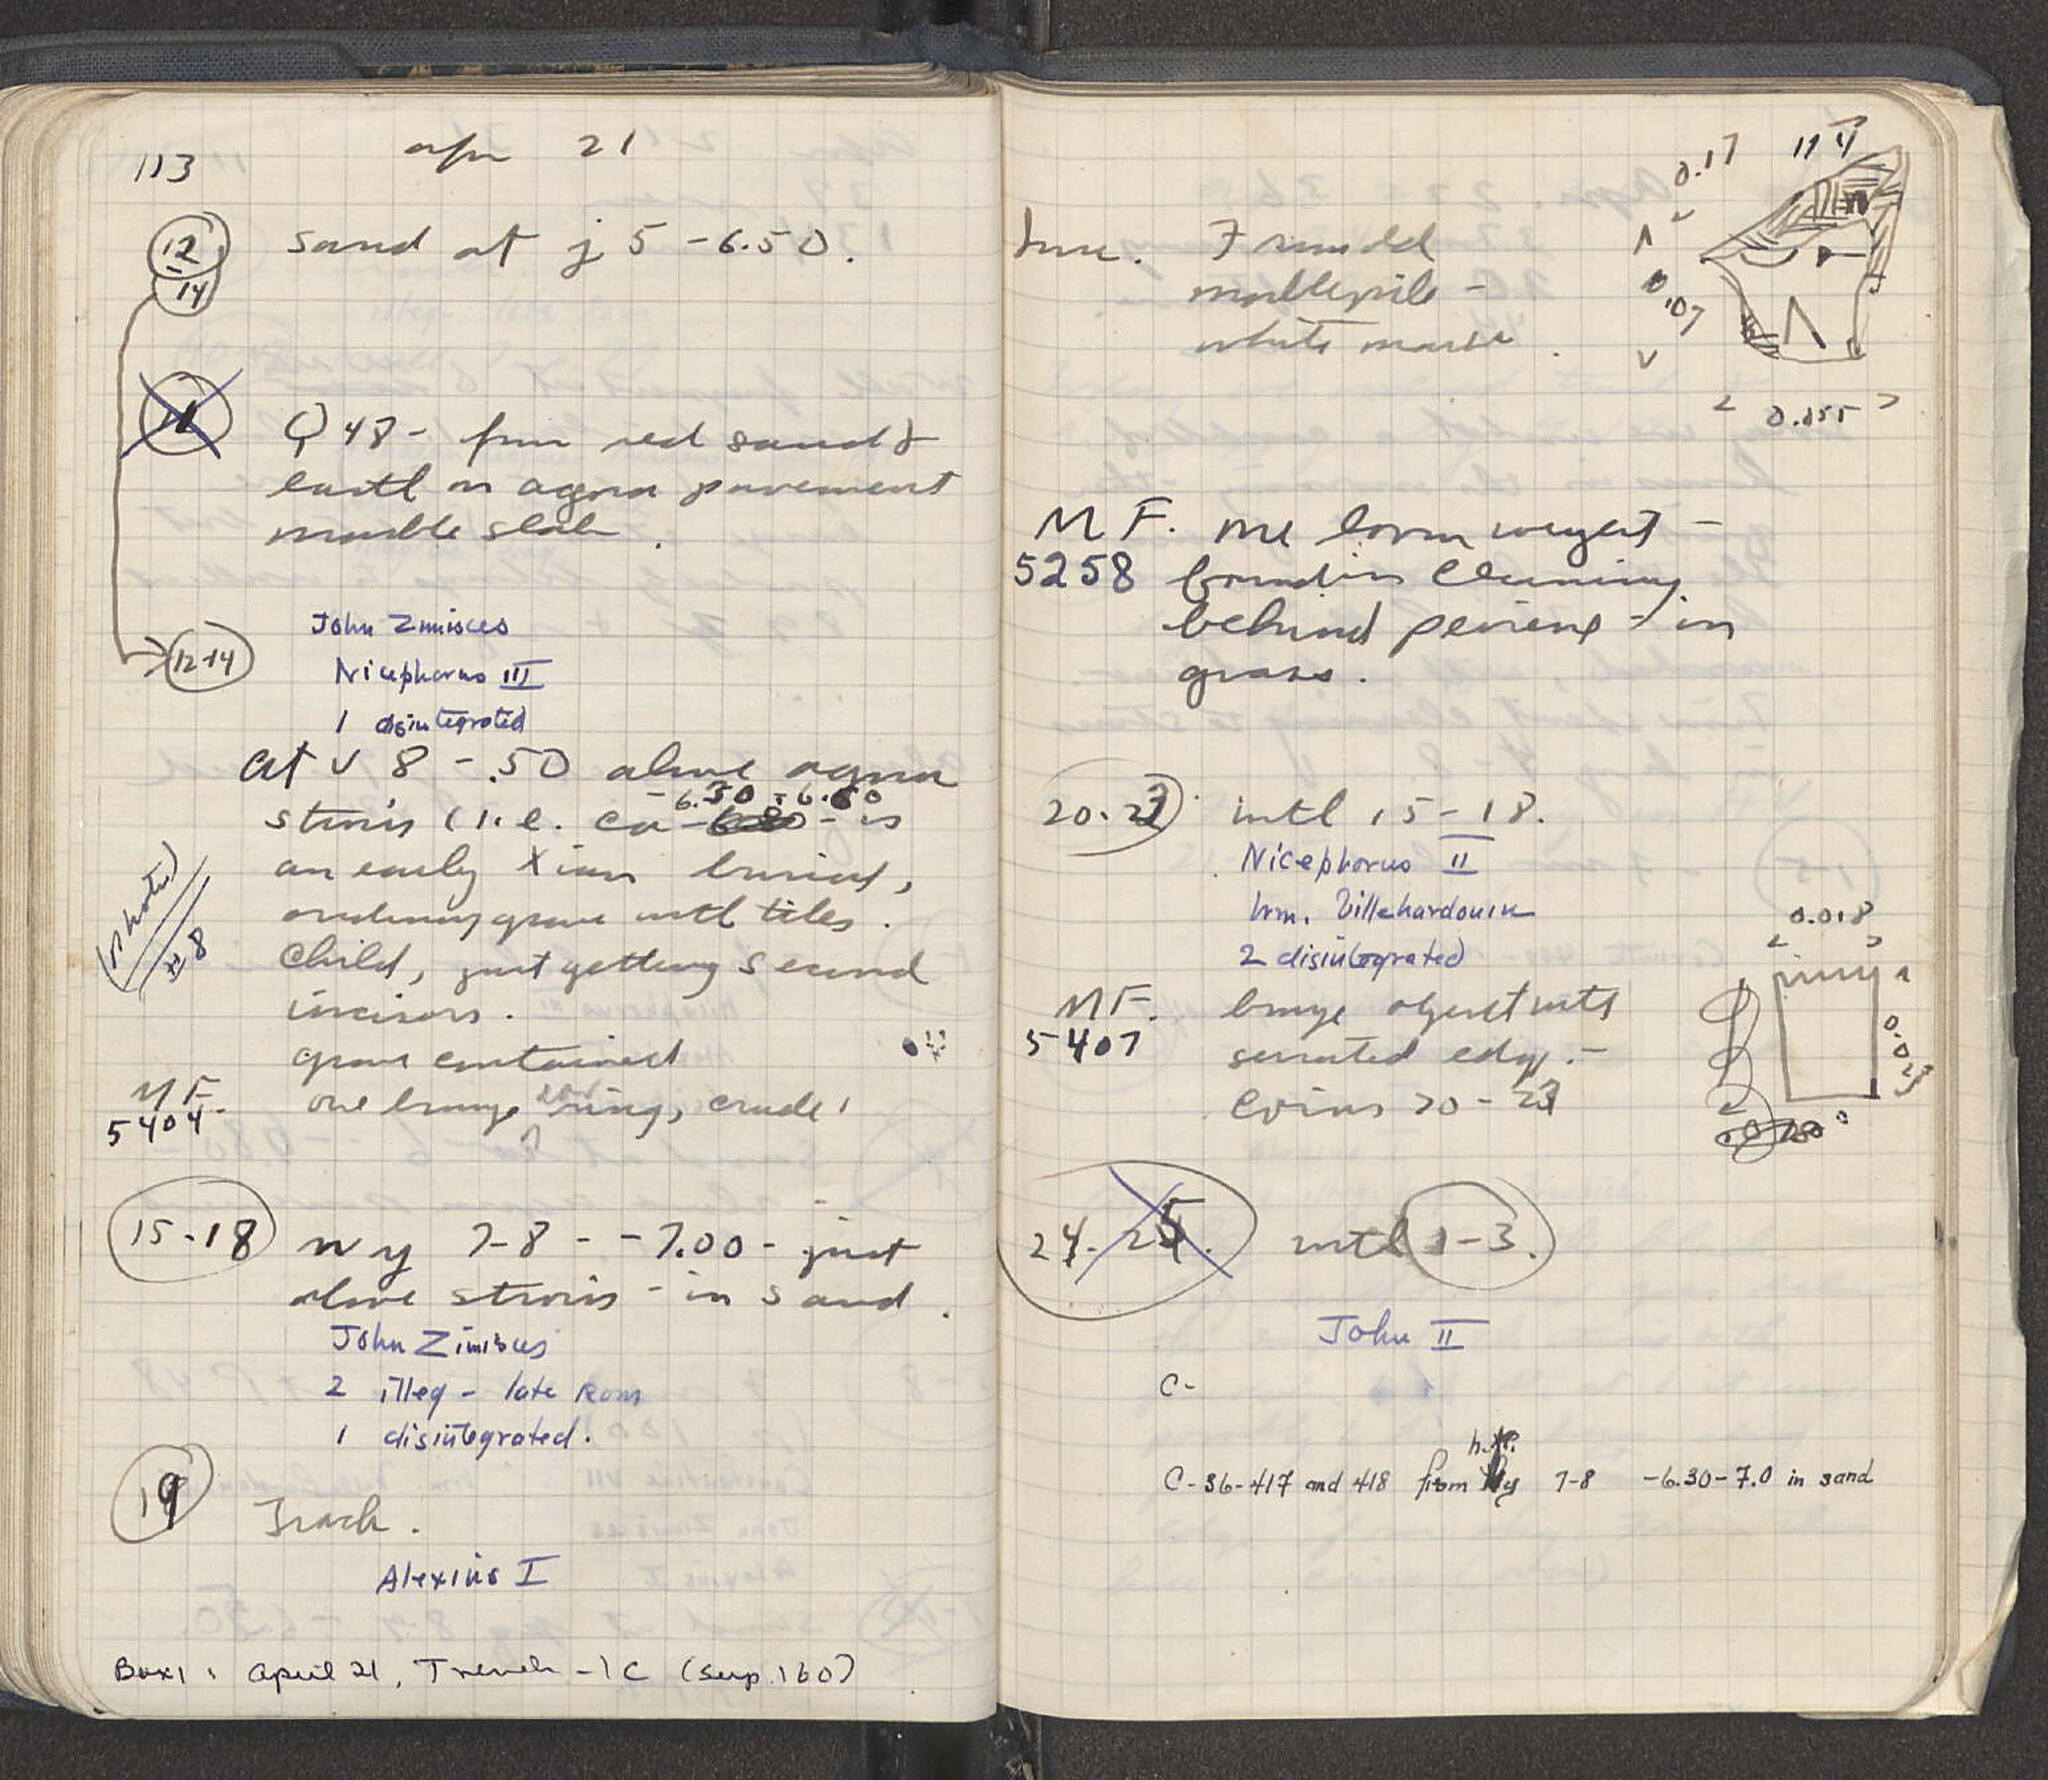 113
apr 21
12
14
sand at j 5 - 6.50.
11
Q 48 - from red sand &
earth on agora pavement
marble slab.
12-14
John Zimisces
Nicephorus III
1 disintegrated
at v 8 - .50 above agora
-6.30 - 6.60
strosis (i.e. ca - is
an early Xian burial,
ordinary grave with tiles.
Child, just getting second
incisors.
(photo)
8
grave contained
MF
5404
one bronze ear ring, crude.
15-18
n y 7-8 - -7.00 - just
above strosis - in sand.
John Zimisces
2 illeg - late Rom
1 disintegrated.
19
Track.
Alexius I
Box 1: April 21, Trench - 1C (sup. 160)
114
0.17
Inscr. Found
marble pile -
white marble.
0.07
0.155
MF. one loom weight -
5258 found in cleaning
behind peirene - in
grass.
20-23 with 15-18.
Nicephorus II
Wm. Villehardouin
2 disintegrated
0.018
MF. bronze object with
5407 serrated edge. -
coins 20-23
24-25. with 1-3.
John II
C-
C-36-417 and 418 from y 7-8 -6.30-7.0 in sand